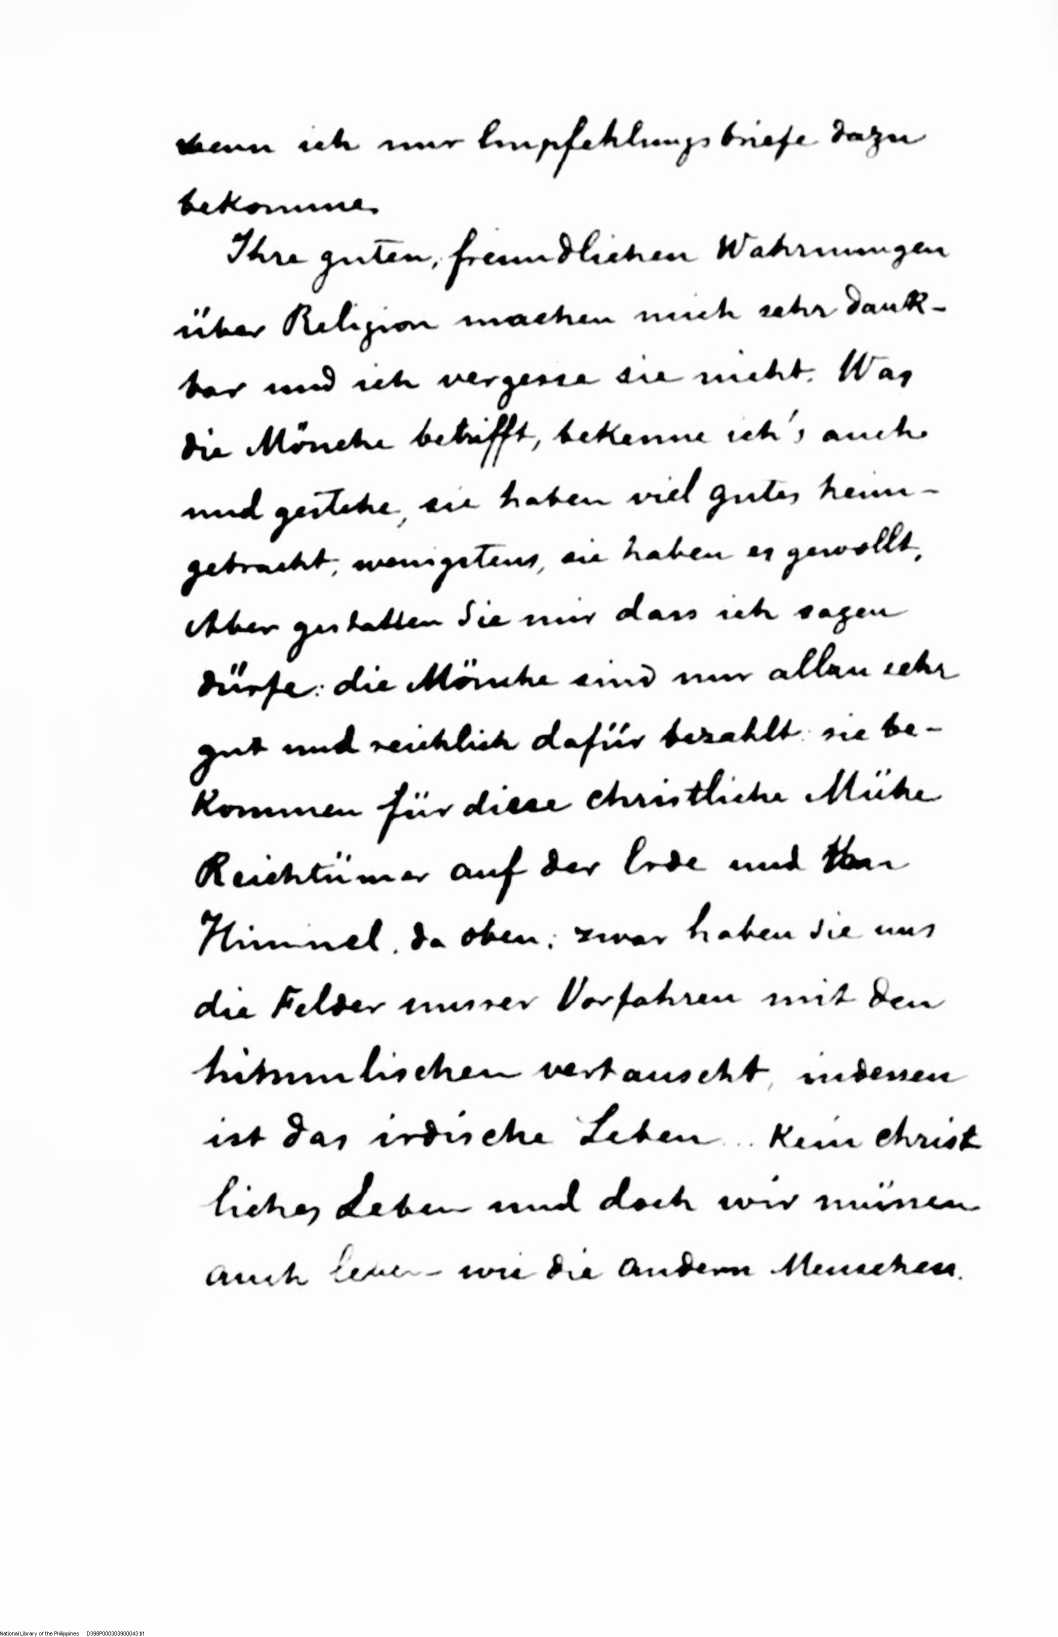 wenn ich nur Empfehlungsbriefe dazu
bekomme.
Ihre guten, freundlichen Wahrnungen
über Religion machen mich sehr dank-
bar und ich vergesse sie nicht. Was
die Mönche betrifft, bekenne ich's auch
und gestehe, sie haben viel gutes heim-
gebracht; wenigstens, sie haben es gewollt.
Aber gestatten Sie mir dass ich sagen
dürfe: die Mönche sind nur allzu sehr
gut und reichlich dafür bezahlt: sie be-
kommen für diese christliche Mühe
Reichtümer auf der Erde und
Himmel, da oben; zwar haben sie uns
die Felder unsrer Vorfahren mit den
himmlischen vertauscht, indessen
ist das irdische Leben ... kein christ
liches Leben und doch wir müssen
auch leben - wie die andern Menschen.
National Library of the Philippines